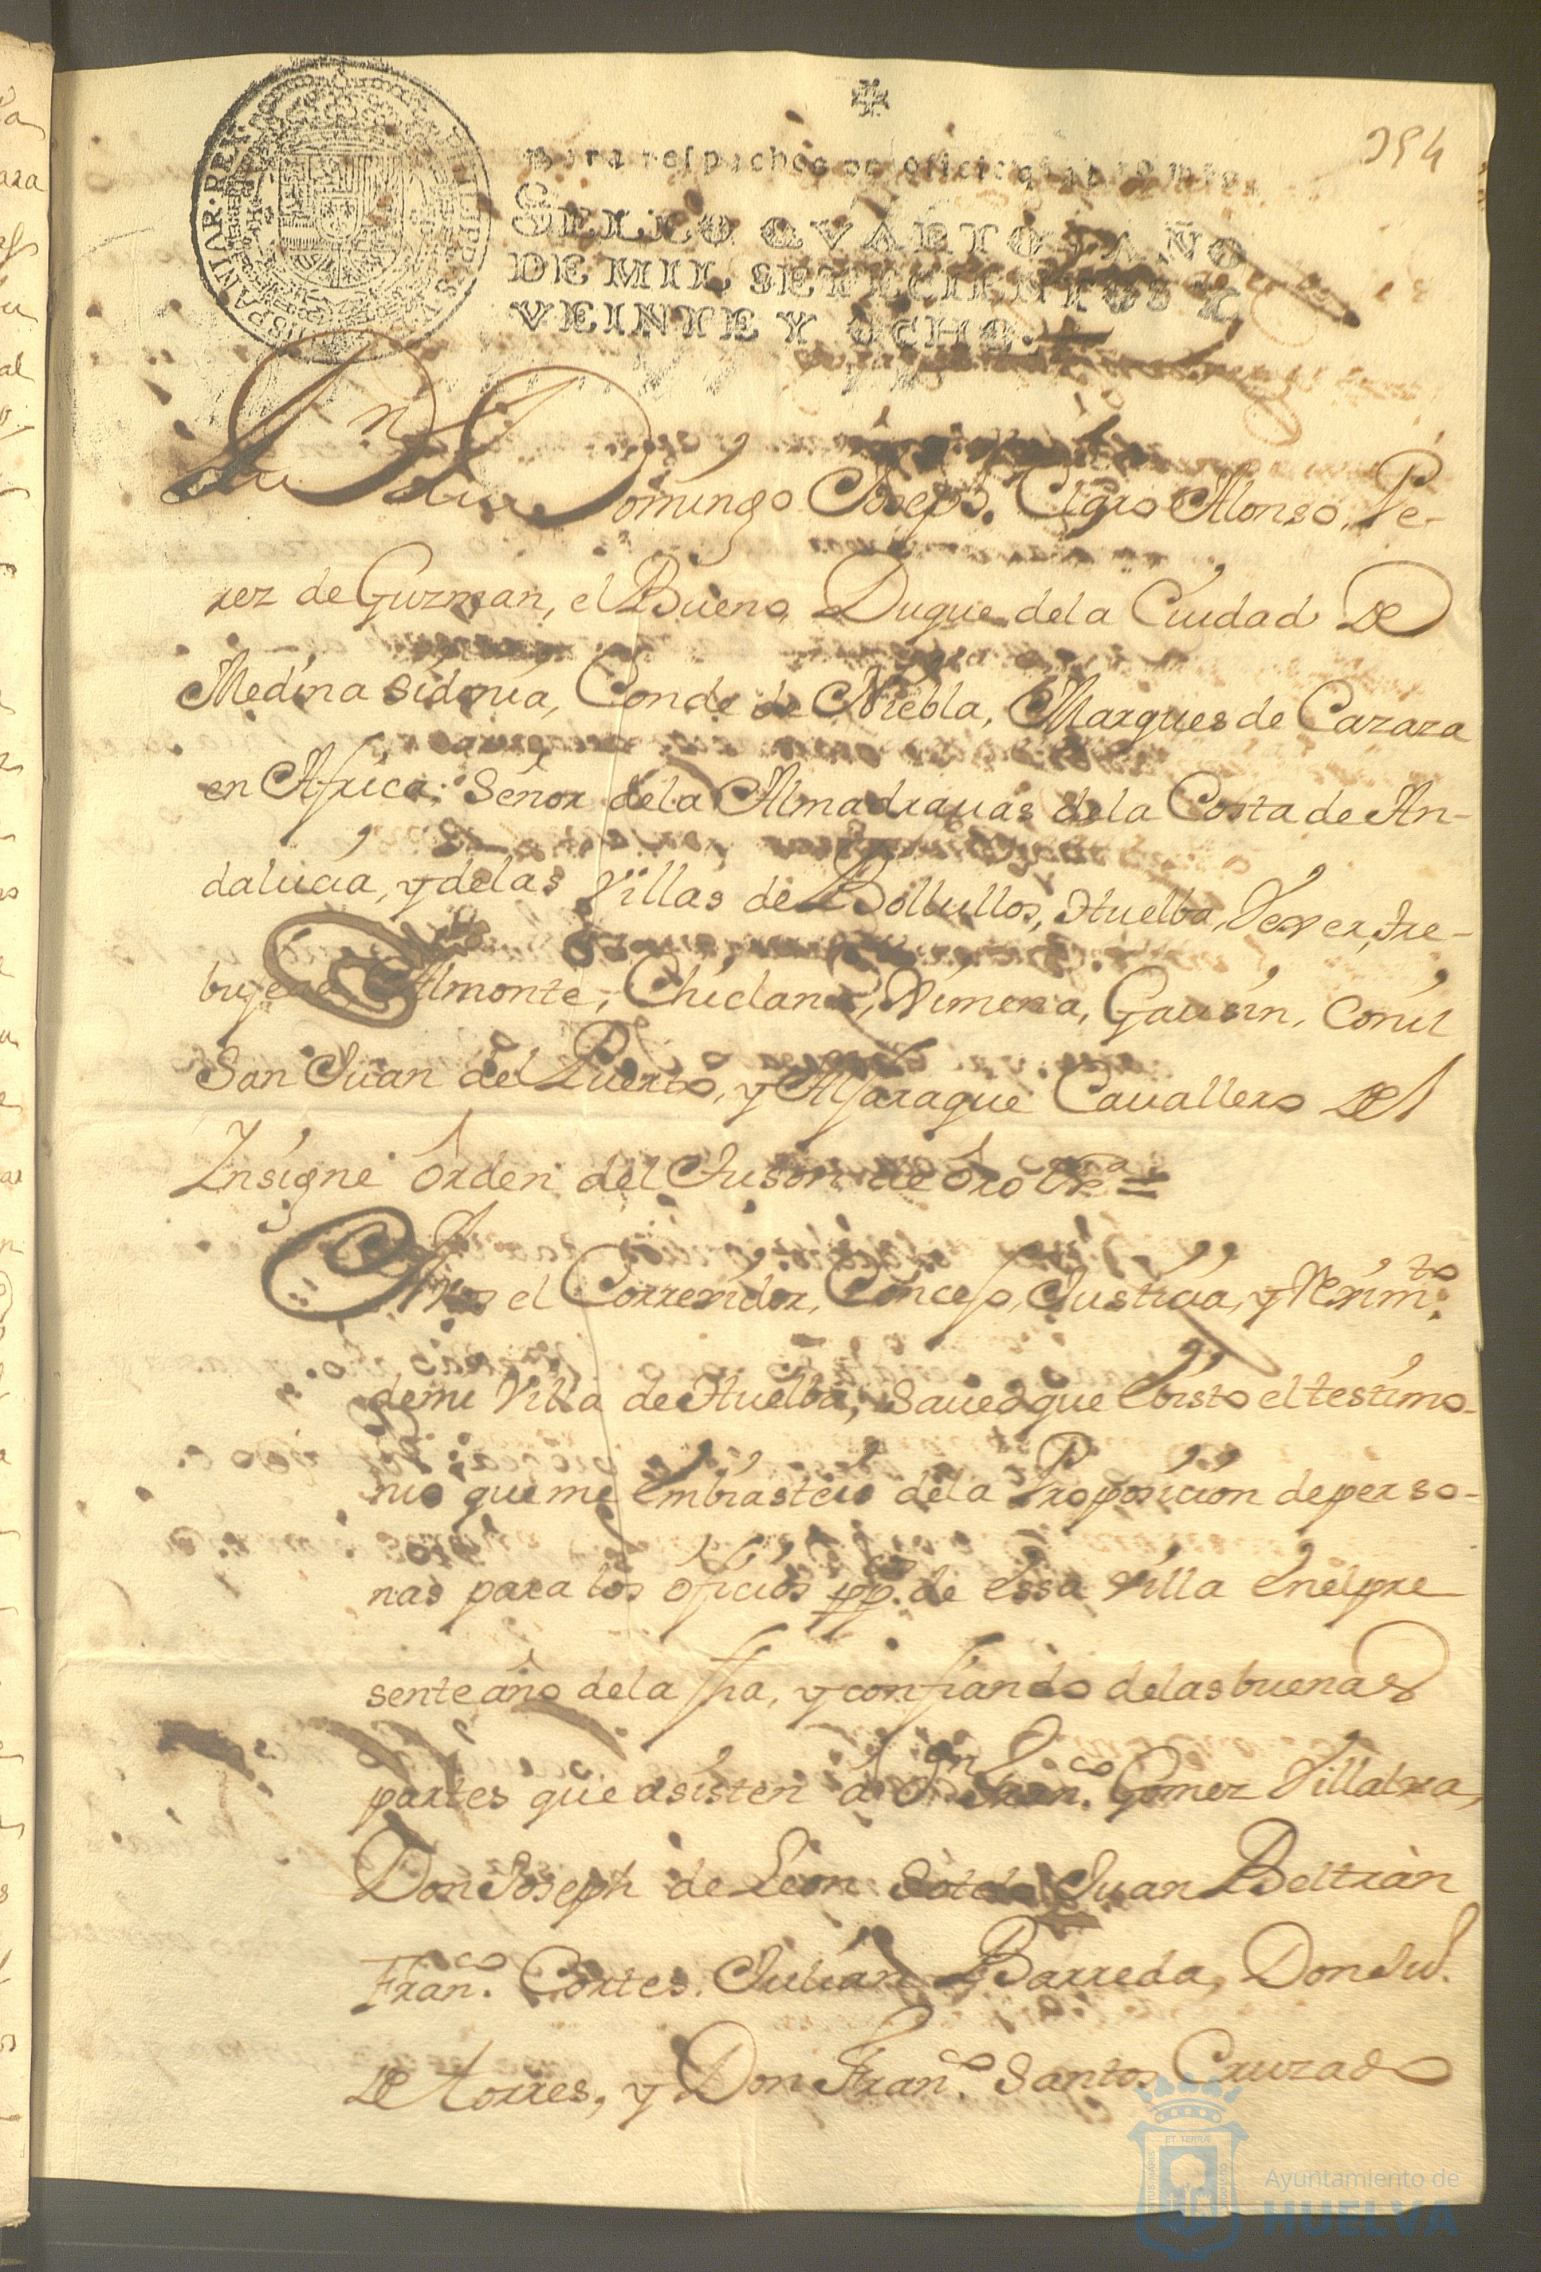 394
Para despachos de oficio quatro mrs.
SELLO QVARTO, AÑO
DE MIL SETECIENTOS Y
VEINTE Y OCHO.
HISPANIAR. REX
PHILIPPVS V
Dn. Domingo Joseph, Claro Alonso, Pe-
rez de Guzman, el Bueno, Duque dela Ciudad de
Medina sidonia, Conde de Niebla, Marques de Cazaza
en Africa; Señor dela Almadrauas dela Costa de An-
dalucia, y delas Villas de Bollullos, Huelba, Vexer, tre-
bujena, Almonte, Chiclana, Ximena, Gausin, Conil
San Juan del Puerto, y Alfaraque Cauallero del
Insigne Orden del tuson de Oro &a =
el Correxidor, Concejo, Justicia, y Rexim.to
demi Villa de Huelba, Saued que é bisto el testimo-
nio que me embiasteis dela Proposicion de perso-
nas para los oficios pp.cos de essa Villa en el pre
sente año dela fha, y confiando delas buenas
partes que asisten á Dn Fran.co Gomez Villalua,
Don Joseph de Leon Sotelo Juan Beltràn
Fran.co Cortes. Julian Barreda, Don Ju.
de torres, y Don Fran.co Santos Cruzado
Ayuntamiento de
HUELVA